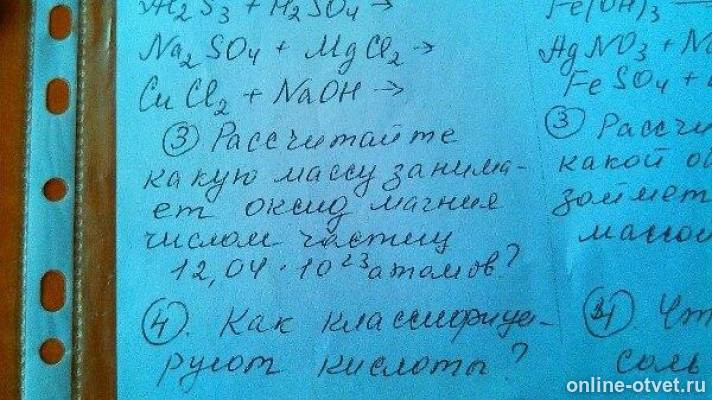 Al2S3 + H2SO4 →
Na2SO4 + MgCl2 →
CuCl2 + NaOH →
③ Рассчитайте
какую массу занима-
ет оксид магния
числом частиц
12,04 · 10²³ атомов?
④. Как классифици-
руют кислоты?
Fe(OH)3
AgNO3 +
FeSO4 +
③
какой
займет
массой
соль
online-otvet.ru